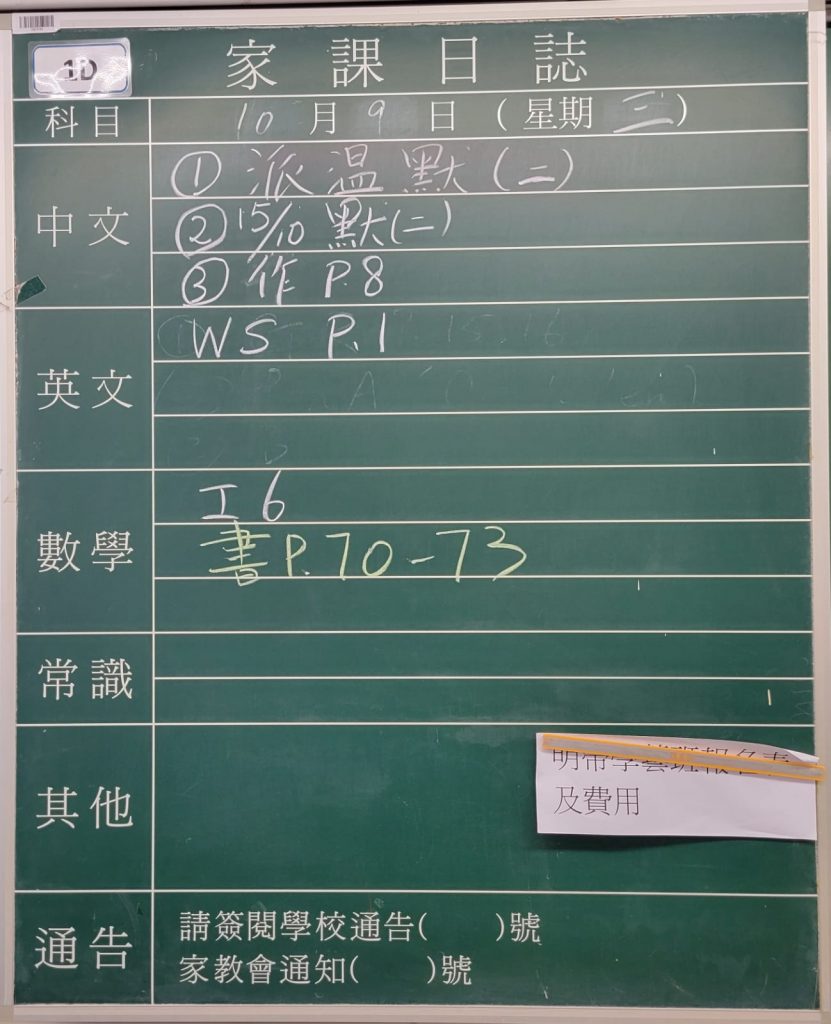 1D
家課日誌
科目 10月9日(星期三)
中文
① 派温默(二)
② 15/10 默(二)
③ 作 P.8
英文
WS P.1
數學
工6
書P.70-73
常識
其他
明帶學藝班報名表
及費用
通告
請簽閱學校通告( )號
家教會通知( )號